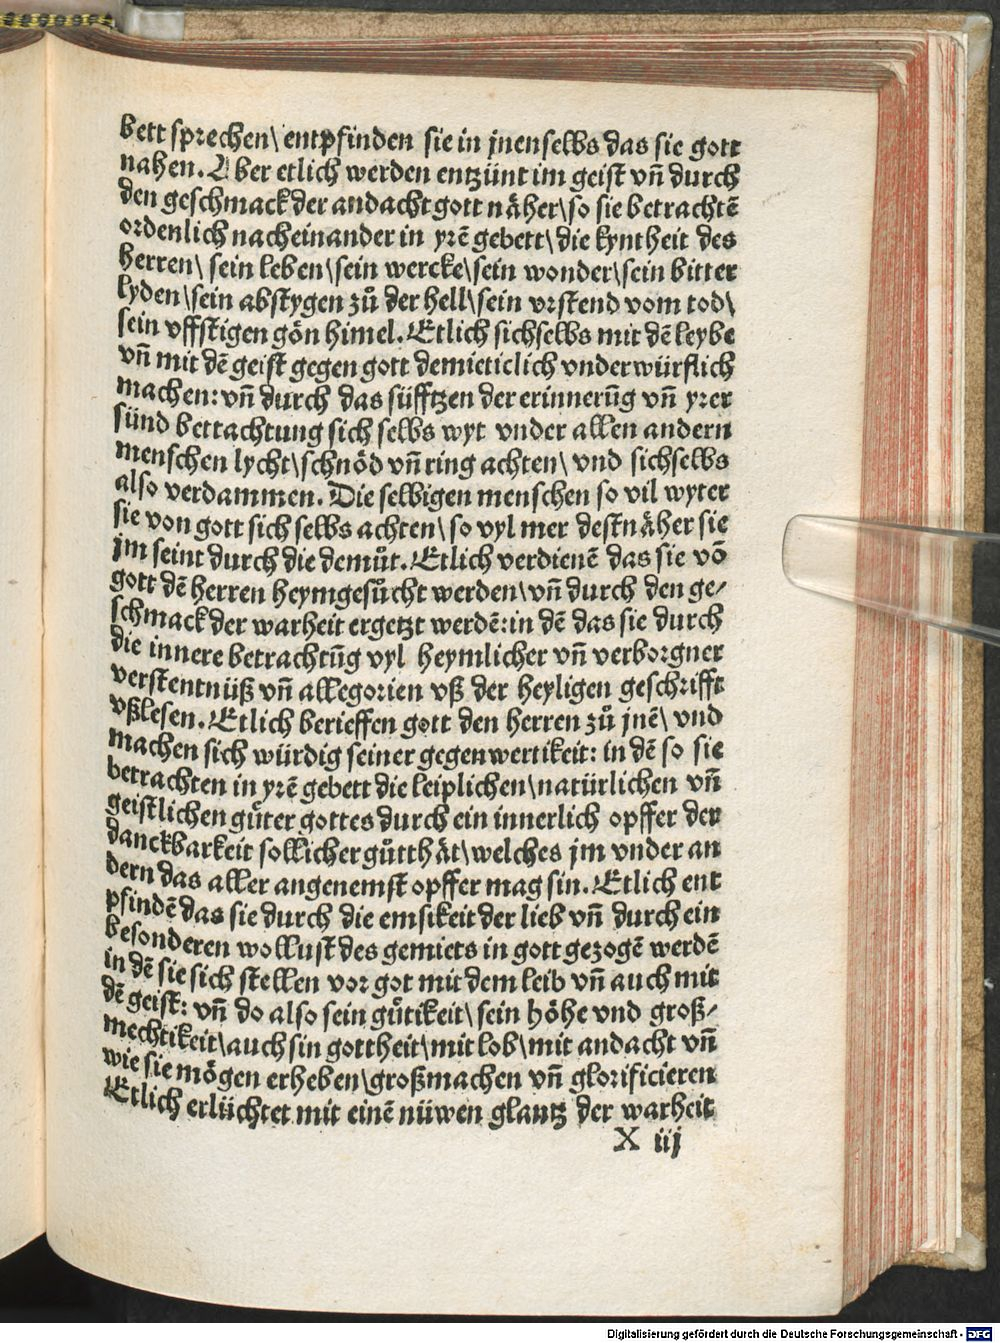 bett sprechen\ entpfinden sie in jnenselbs das sie gott
nahen. Aber etlich werden entzünt im geist vn̄ durch
den geschmack der andacht gott näher\ so sie betrachtē
ordenlich nacheinander in yrē gebett\ die kyntheit des
herren\ sein leben\ sein wercke\ sein wonder\ sein bitter
lyden\ sein abstygen zů der hell\ sein vrstend vom tod\
sein vffstigen gön himel. Etlich sichselbs mit dē leybe
vn̄ mit dē geist gegen gott demieticlich vnderwürflich
machen: vn̄ durch das süfftzen der erinnerūg vn̄ yrer
sünd bettachtung sich selbs wyt vnder allen andern
menschen lycht\ schnöd vn̄ ring achten\ vnd sichselbs
also verdammen. Die selbigen menschen so vil wyter
sie von gott sich selbs achten\ so vyl mer destnäher sie
jm seint durch die demůt. Etlich verdienē das sie vō
gott dē herren heymgesůcht werden\ vn̄ durch den ge⸗
schmack der warheit ergetzt werdē: in dē das sie durch
die innere betrachtūg vyl heymlicher vn̄ verborgner
verstentnüß vn̄ allegorien vß der heyligen geschrifft
vßlesen. Etlich berieffen gott den herren zů jnē\ vnd
machen sich würdig seiner gegenwertikeit: in dē so sie
betrachten in yrē gebett die leiplichen\ natürlichen vn̄
geistlichen gůter gottes durch ein innerlich opffer der
danckbarkeit sollicher gůtthät\ welches jm vnder an
dern das aller angenemst opffer mag sin. Etlich ent
pfindē das sie durch die emsikeit der lieb vn̄ durch ein
besonderen wollust des gemiets in gott gezogē werdē
in dē sie sich stellen vor got mit dem leib vn̄ auch mit
dē geist: vn̄ do also sein gůtikeit\ sein höhe vnd groß⸗
mechtikeit\ auch sin gottheit\ mit lob\ mit andacht vn̄
wie sie mögen erheben\ großmachen vn̄ glorificieren
Etlich erlüchtet mit einē nüwen glantz der warheit
X iij
Digitalisierung gefördert durch die Deutsche Forschungsgemeinschaft - DFG